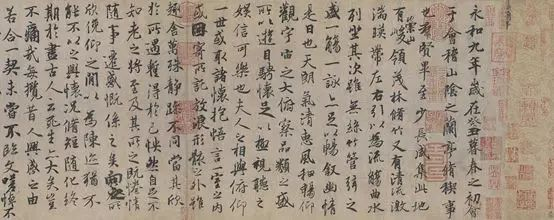 永和九年歲在癸丑暮春之初會
于會稽山陰之蘭亭脩稧事
也群賢畢至少長咸集此地
有崇山峻領茂林脩竹又有清流激
湍暎帶左右引以為流觴曲水
列坐其次雖無絲竹管弦之
盛一觴一詠亦足以暢敘幽情
是日也天朗氣清惠風和暢仰
觀宇宙之大俯察品類之盛
所以遊目騁懷足以極視聽之
娛信可樂也夫人之相與俯仰
一世或取諸懷抱悟言一室之內
或因寄所託放浪形骸之外雖
趣舍萬殊靜躁不同當其欣
於所遇暫得於己怏然自足不
知老之將至及其所之既惓情
隨事遷感慨係之矣向之所
欣俛仰之間以為陳迹猶不
能不以之興懷況脩短隨化終
期於盡古人云死生亦大矣豈
不痛哉每攬昔人興感之由
若合一契未嘗不臨文嗟悼不